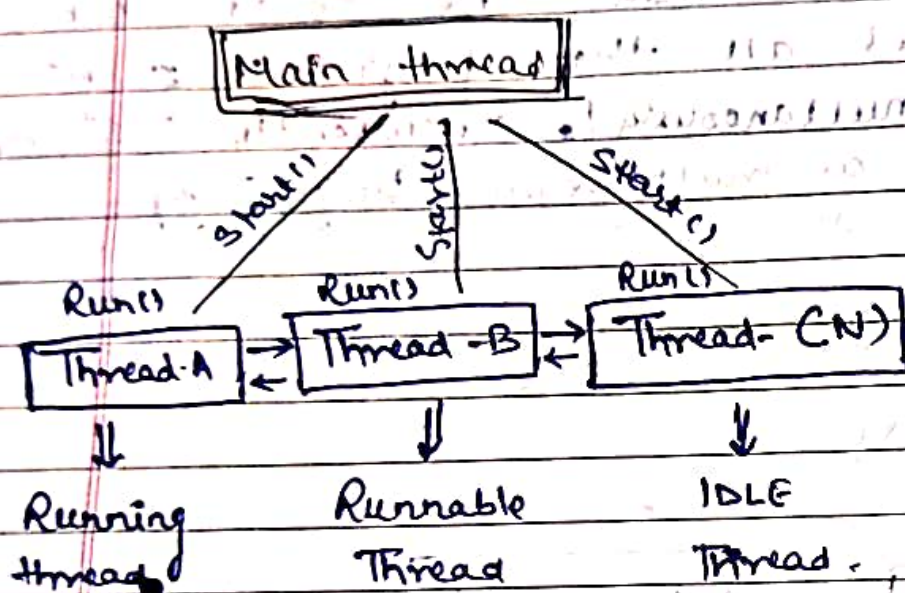 Main thread
Start()
Start()
Start()
Run()
Run()
Run()
Thread-A
Thread-B
Thread-(N)
Running
Runnable
IDLE
thread
Thread
Thread.